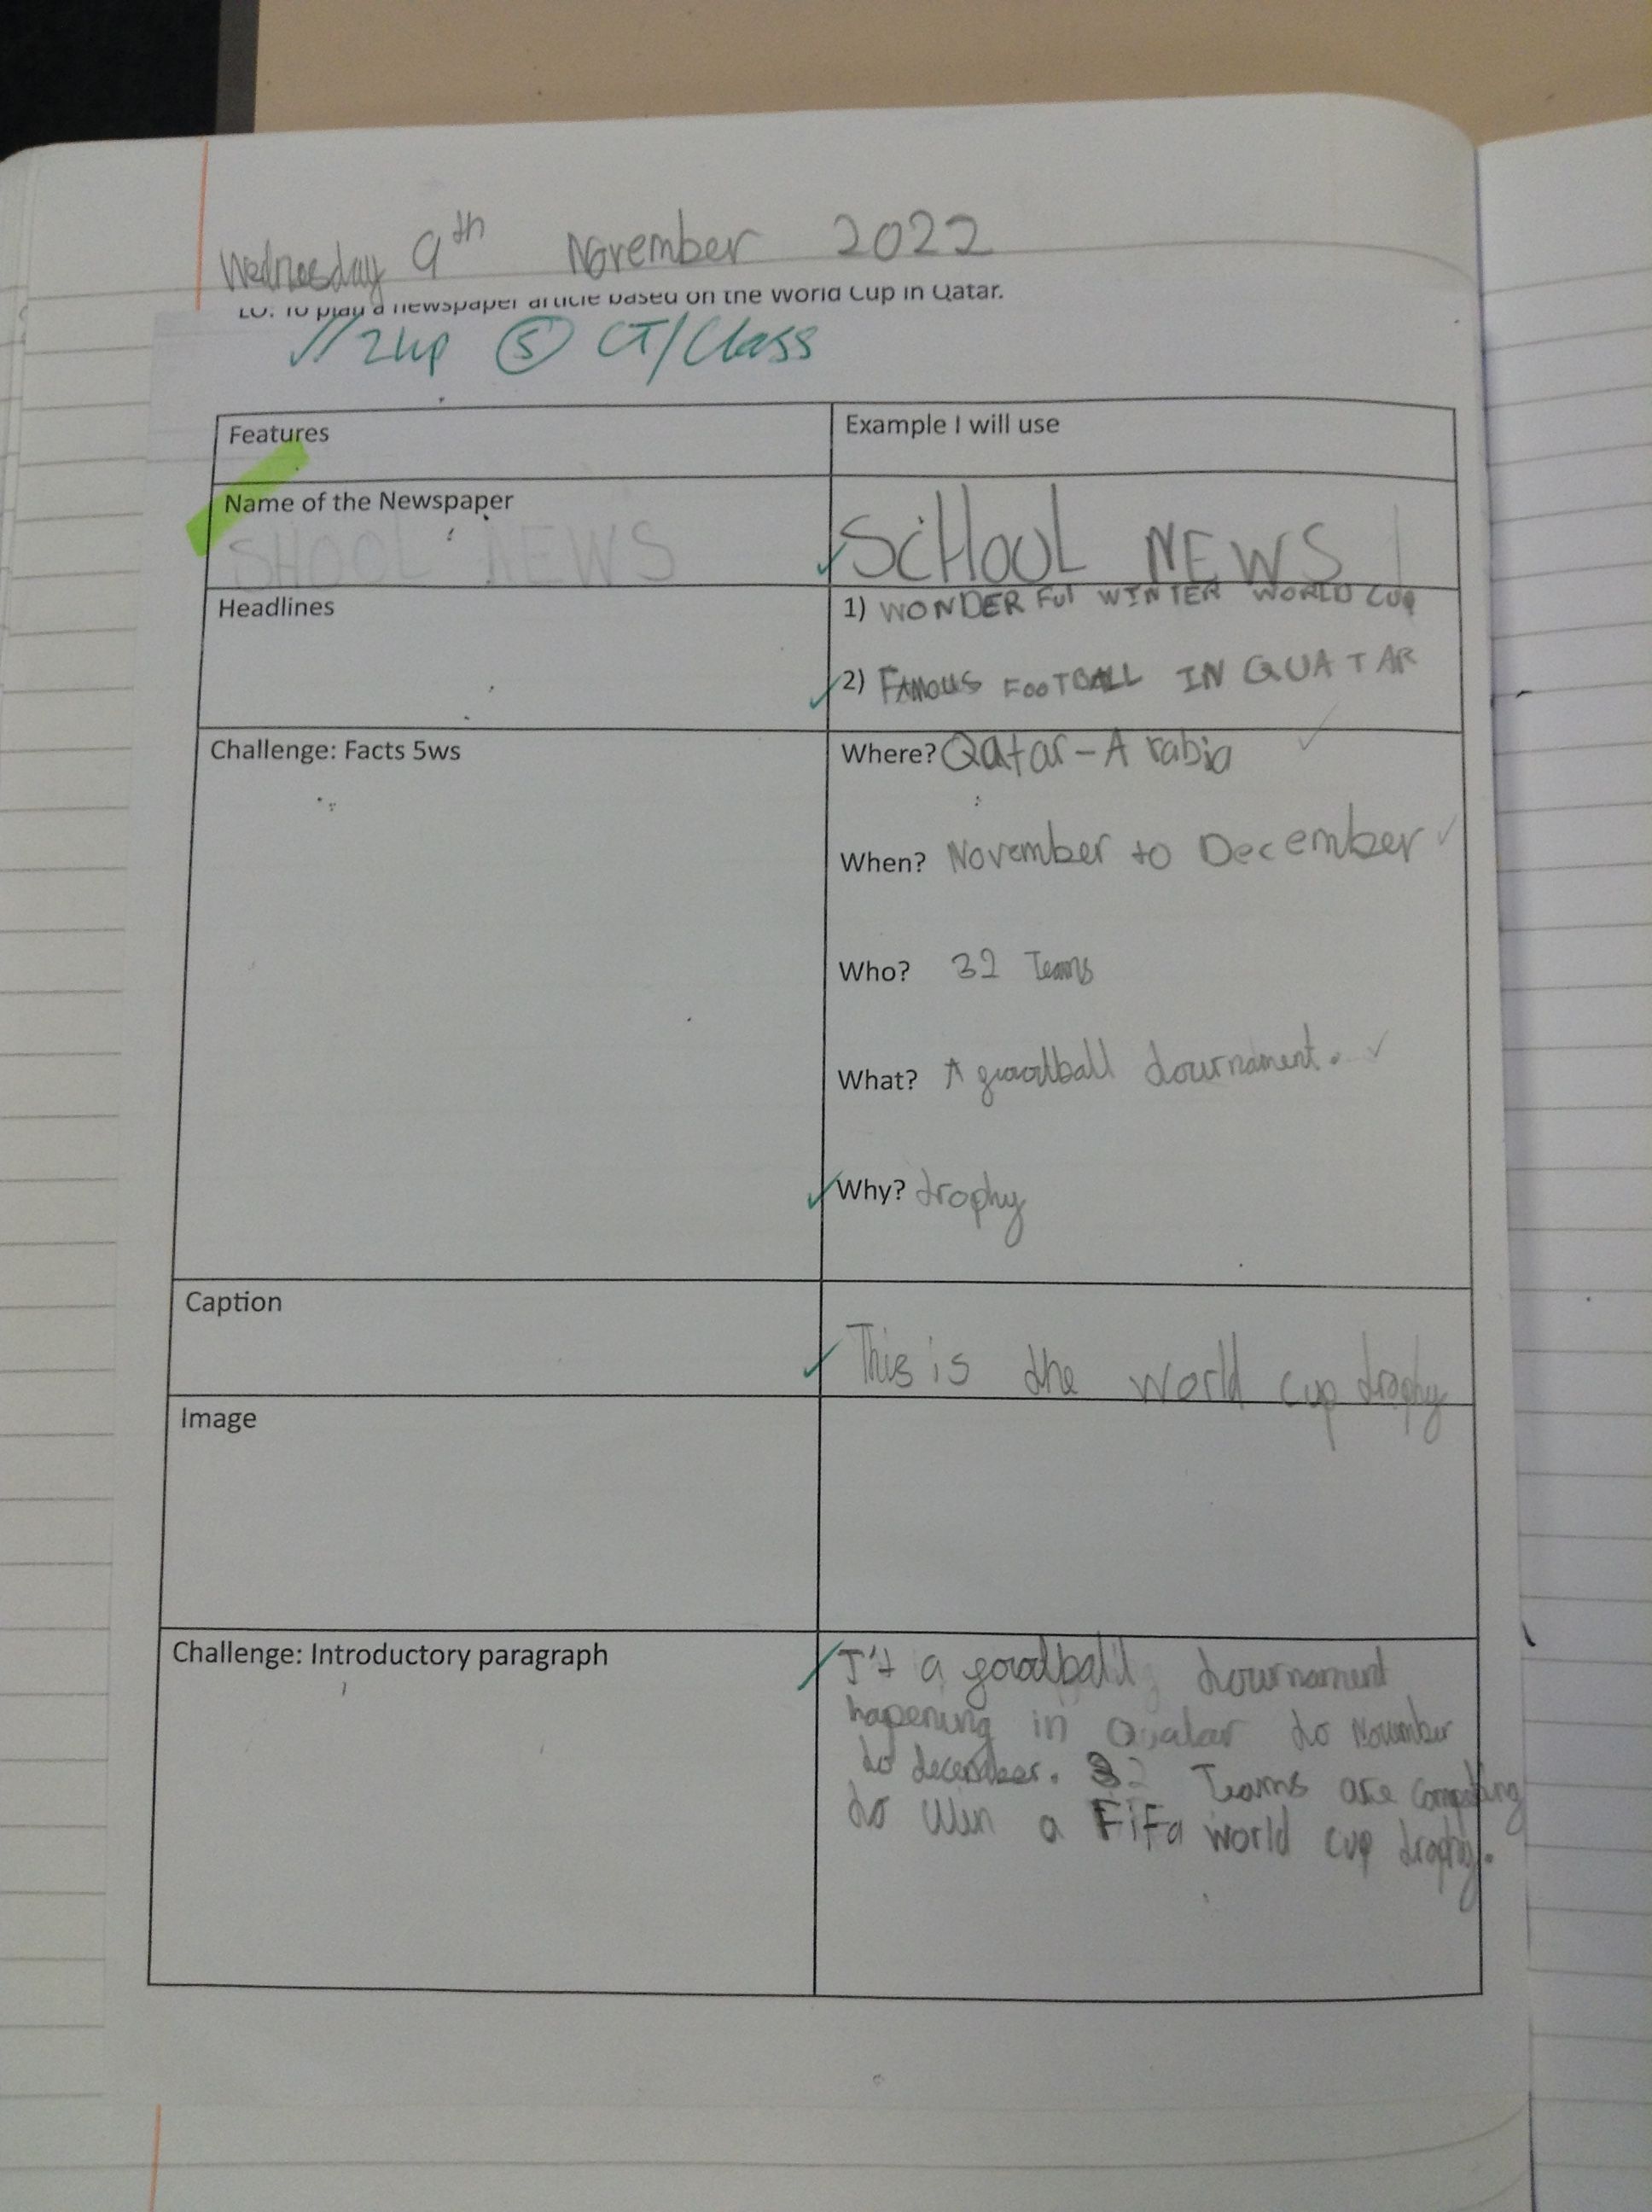 Wednesday 9th November 2022
LO: To plan a newspaper article based on the World Cup in Qatar.
//2hp S CT/Class
Features
Example I will use
Name of the Newspaper
SHOOL NEWS
SCHOOL NEWS
Headlines
1) WONDERFul WINTER WORLD CUP
2) FAMOUS FOOTBALL IN QUATAR
Challenge: Facts 5ws
Where? Qatar-Arabia
When? November to December
Who? 32 Teams
What? A football tournament.
Why? trophy
Caption
This is the world cup trophy
Image
Challenge: Introductory paragraph
I't a football tournament
hapening in Quatar to November
to december. 32 Teams are competing
to win a FiFa world cup trophy.